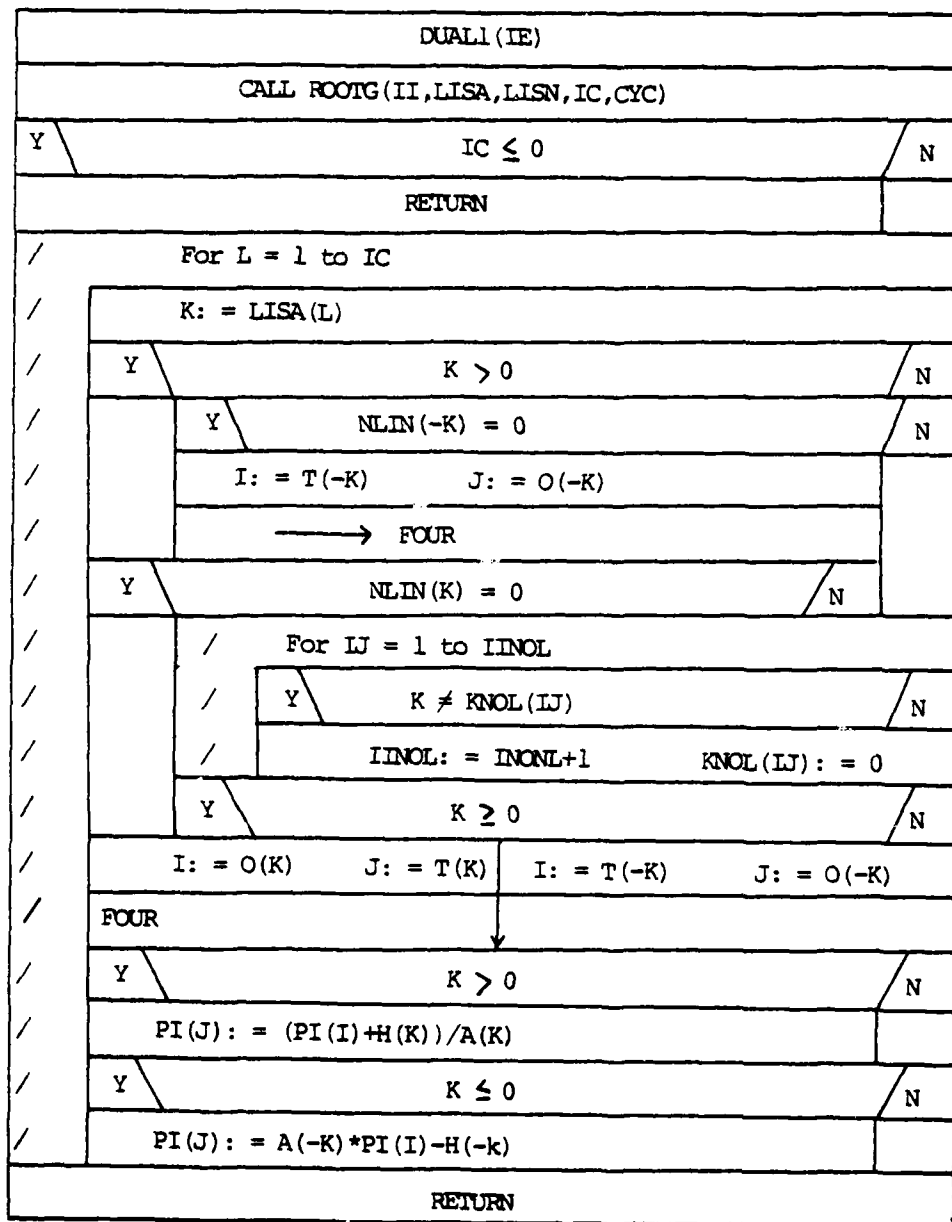 DUAL1(IE)
CALL ROOTG(II,LISA,LISN,IC,CYC)
Y IC ≤ 0 N
RETURN
/ For L = 1 to IC
/ K: = LISA(L)
/ Y K > 0 N
/ Y NLIN(-K) = 0 N
/ I: = T(-K) J: = O(-K)
/ ⟶ FOUR
/ Y NLIN(K) = 0 N
/ / For IJ = 1 to IINOL
/ / Y K ≠ KNOL(IJ) N
/ / IINOL: = INONL+1 KNOL(IJ): = 0
/ Y K ≥ 0 N
/ I: = O(K) J: = T(K) I: = T(-K) J: = O(-K)
/ FOUR
/ Y K > 0 N
/ PI(J): = (PI(I)+H(K))/A(K)
/ Y K ≤ 0 N
/ PI(J): = A(-K)*PI(I)-H(-k)
RETURN